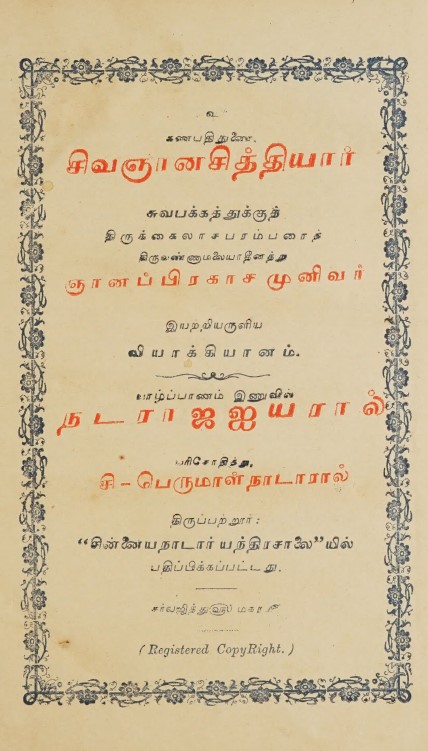 உ
கணபதிதுணை.
சிவஞானசித்தியார்
சுவபக்கத்துக்குத்
திருக்கைலாசபரம்பரைத்
திருவண்ணாமலையாதீனத்து
ஞானப்பிரகாசமுனிவர்
இயற்றியருளிய
வியாக்கியானம்.
யாழ்ப்பாணம் இணுவில்
நடராஜஐயரால்
பரிசோதித்து,
சி-பெருமாள்நாடாரால்
திருப்பற்றூர்:
“சின்னையநாடார் யந்திரசாலை”யில்
பதிப்பிக்கப்பட்டது.
சர்வஜித்து௵
(Registered CopyRight.)